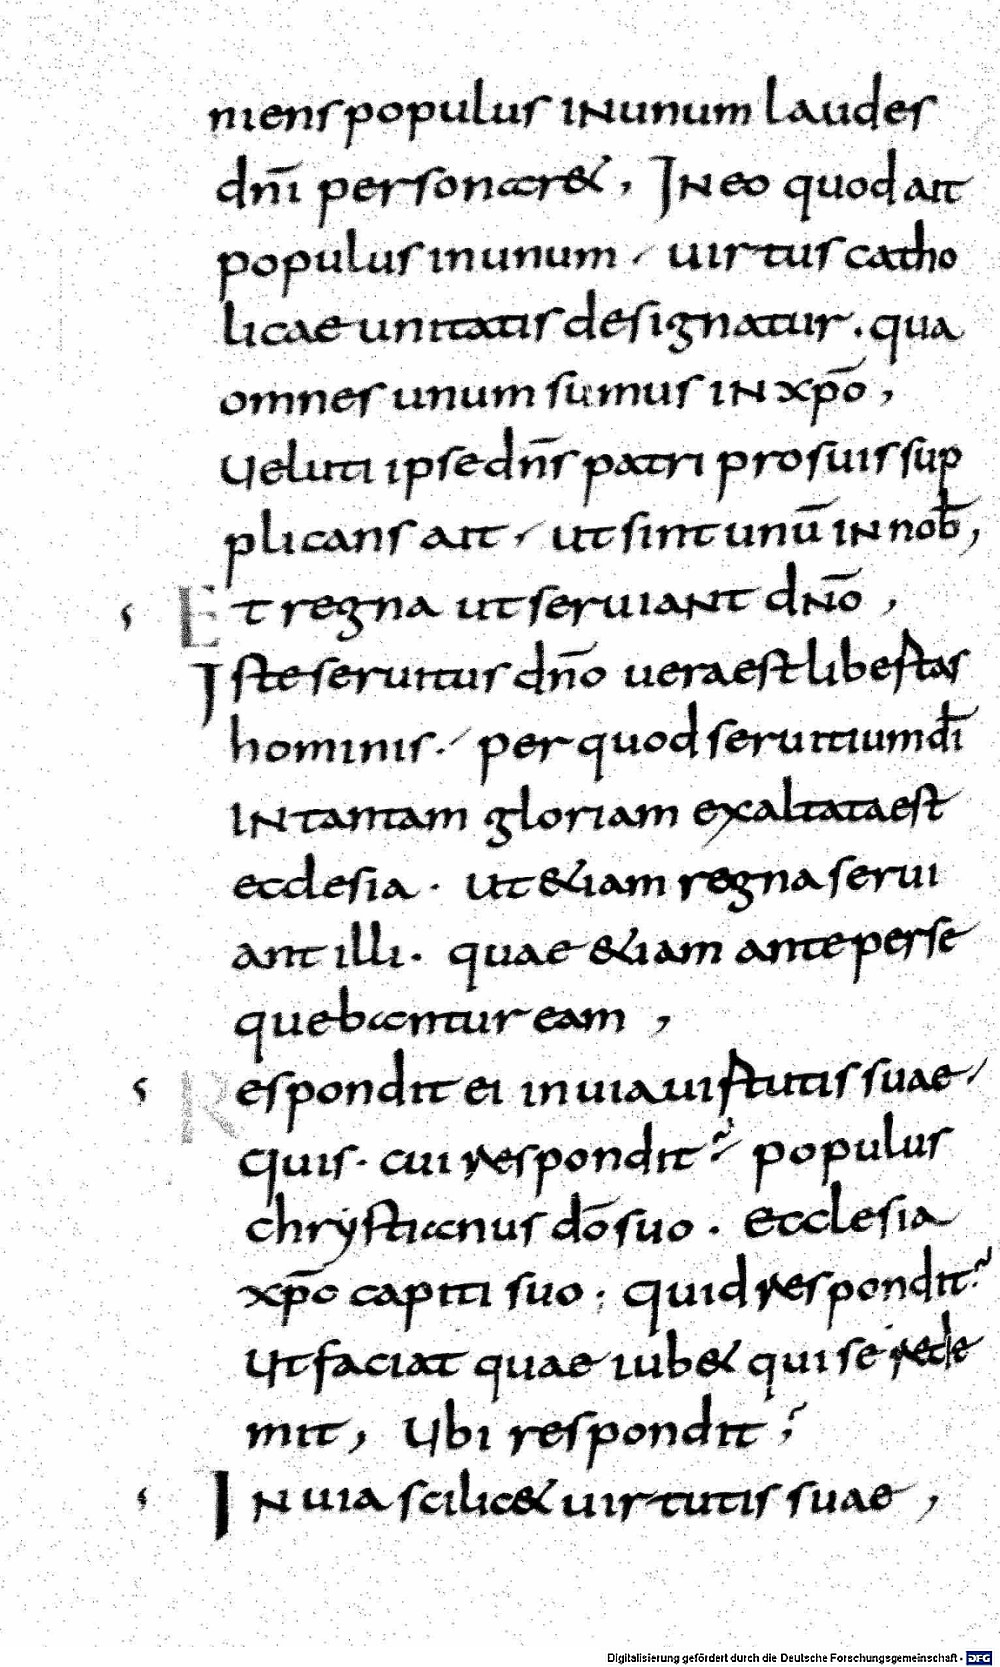 niens populus in unum laudes
dn̄i personaret, In eo quod ait
populus in unum / uirtus catho
licae unitatis designatur. qua
omnes unum sumus in xp̄o,
Ueluti ipse dn̄s patri pro suis sup
plicans ait / ut sint unū in nob̄,
Et regna ut seruiant dn̄o,
Iste seruitus dn̄o uera est libertas
hominis. / per quod seruitium dī
In tantam gloriam exaltata est
ecclesia. Ut etiam regna serui
ant illi. quae etiam ante perse
quebantur eam,
Respondit ei in uia uirtutis suae /
quis. cui respondit? populus
chrystianus dō suo. Ecclesia
xp̄o capiti suo; quid respondit?
Ut faciat quae iubet qui se rede
mit, Ubi respondit?
In uia scilicet uirtutis suae,
Digitalisierung gefördert durch die Deutsche Forschungsgemeinschaft - DFG